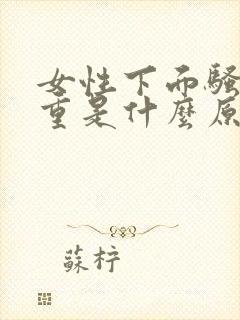 女性下面騷
重是什麼原
蘇梓